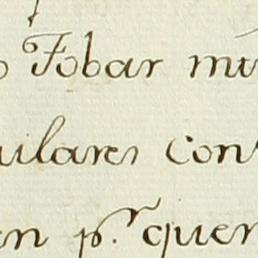 Tobar
ulares con
en p.r quer